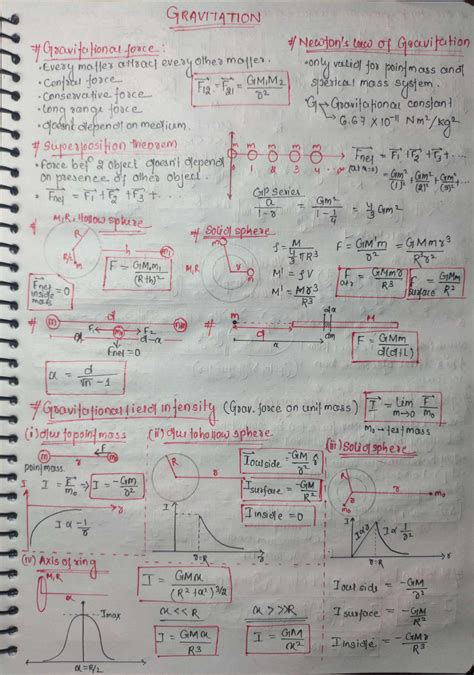 GRAVITATION
# Gravitational force :
• Every matter attract every other matter.
• Central force
• Conservative force
• Long range force
• doesnt depend on medium.
F12 = F21 = GM1M2 / r²
# Newton's law of Gravitation
• only valid for point mass and
sperical mass system.
G → Gravitational constant
6.67 x 10⁻¹¹ Nm²/kg²
# Superposition theorem
• Force bet² 2 object doesn't depend
on presence of other object.
• Fnet = F1 + F2 + F3 + ....
m m m m m
0 1 2 3 4 ∞
Fnet = F1 + F2 + F3 + ...
(at x=0) = Gm²/(1)² + Gm²/(2)² + Gm²/(4)² + ...
GP series
a / 1-r = Gm² / 1-1/4 = 4/3 Gm²
# M,R : Hollow sphere
R
h
m1
R/h
F = GM1m1 / (R+h)²
Fnet inside mass = 0
# Solid sphere
M,R
m
r
ρ = M / 4/3πR³
M' = ρV
M' = Mr³ / R³
F = GM'm / r² = GMmr³ / R³r²
F at r = GMmr / R³
F surface = GMm / R²
# d
m
F1 F2
nm
x d-x
Fnet = 0
x = d / √n - 1
# m
dx
M
x
d dm
F = GMm / d(d+L)
# Gravitational field intensity (Grav. force on unit mass)
I = Lim m→0 F / m0
m0 → test mass
(i) due to point mass
F
m m0
point mass.
r
I = F / m0 ⇒ I = -GM / r²
I
I α -1/r
r
(ii) due to hollow sphere
R
r
I outside = -GM / r² r̂
I surface = -GM / R²
I inside = 0
I
r=R
r
(iii) Solid sphere
R
r
m0
I
I α r
I α 1/r²
r=R
r
I outside = -GM / r²
I surface = -GM / R²
I inside = -GMr / R³
(iv) Axis of ring
M,R
x
I = GMx / (R²+x²)^3/2
x << R
I = GMx / R³
x >> R
I = GM / x²
Imax
x = R/√2